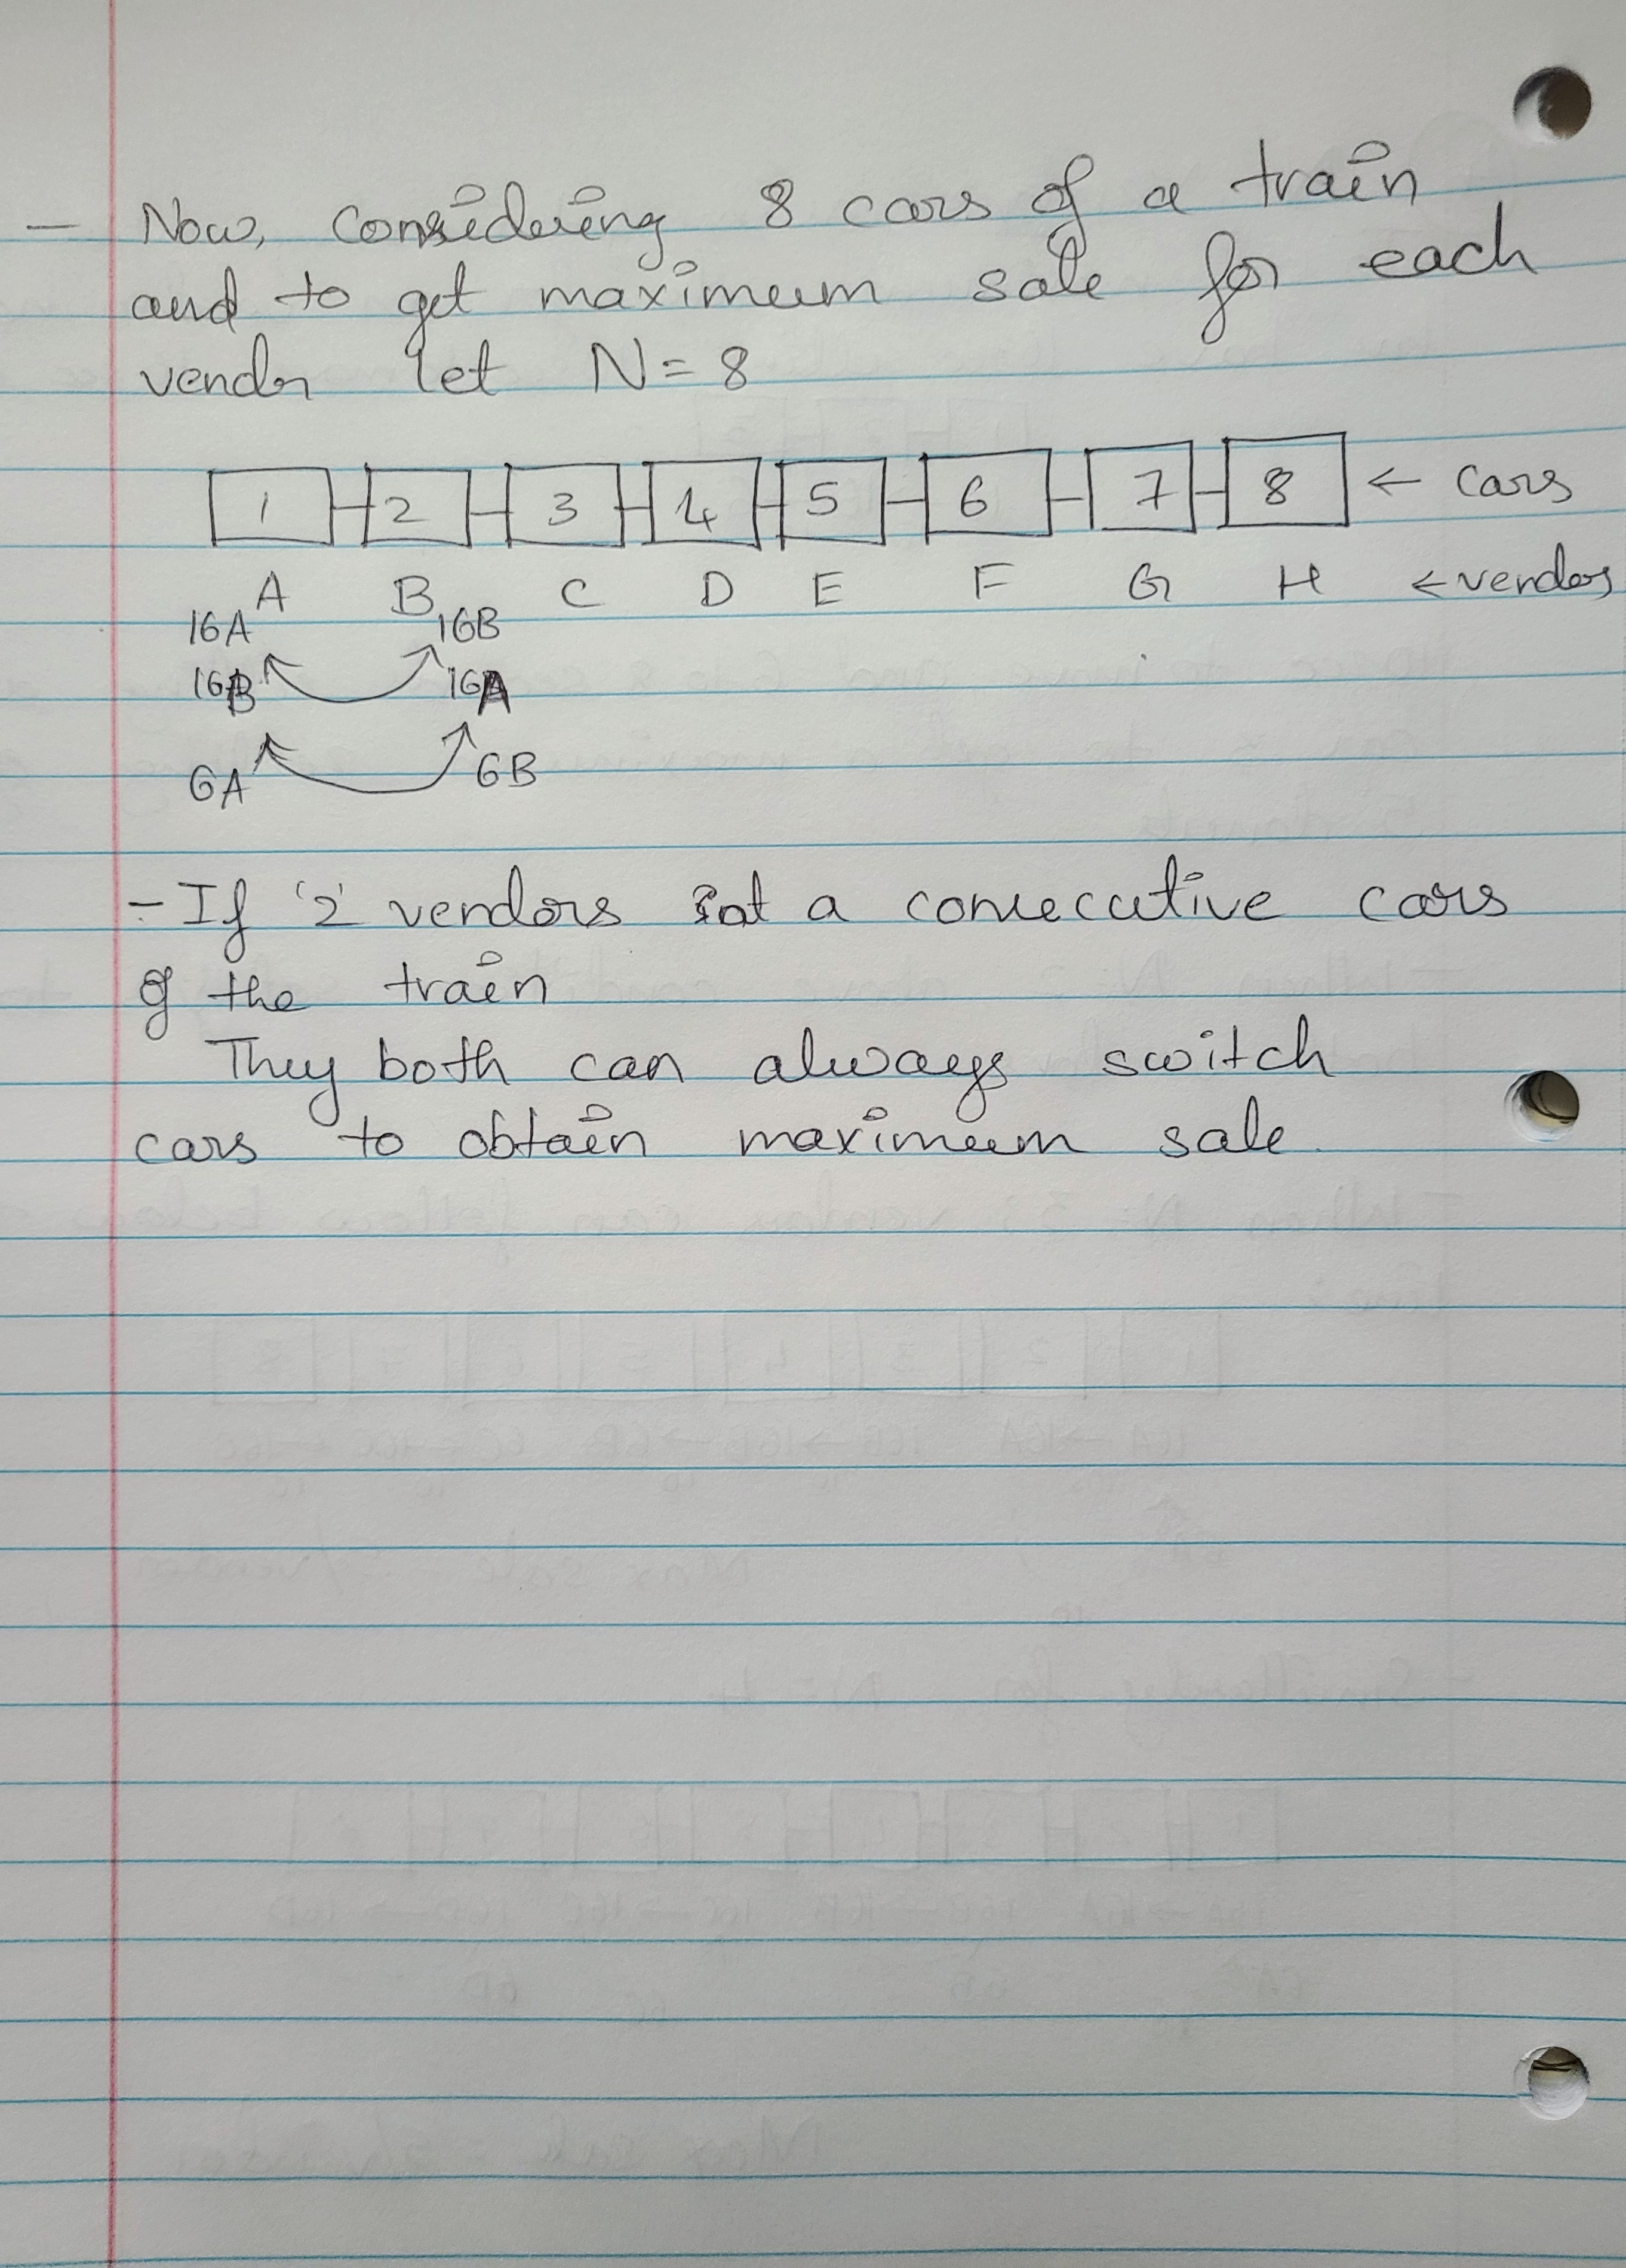 - Now, Considering 8 cars of a train
and to get maximum sale for each
vendor let N=8
1 2 3 4 5 6 7 8 ← cars
A B C D E F G H ← vendors
16A 16B
16B 16A
6A 6B
- If '2' vendors at a consecutive cars
of the train
They both can always switch
cars to obtain maximum sale.